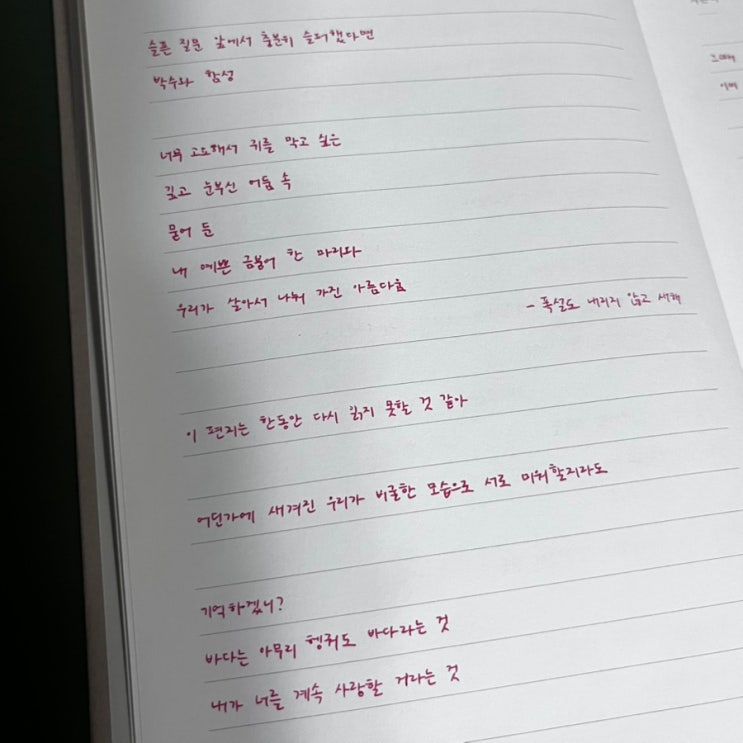 슬픈 질문 앞에서 충분히 슬퍼했다면
박수와 함성
너무 고요해서 귀를 막고 싶은
깊고 눈부신 어둠 속
묻어 둔
내 예쁜 금붕어 한 마리와
우리가 살아서 나눠 가진 아름다움
- 폭설도 내리지 않고 새해
이 편지는 한동안 다시 읽지 못할 것 같아
어딘가에 새겨진 우리가 비굴한 모습으로 서로 미워할지라도
기억하겠니?
바다는 아무리 헹궈도 바다라는 것
내가 너를 계속 사랑할 거라는 것